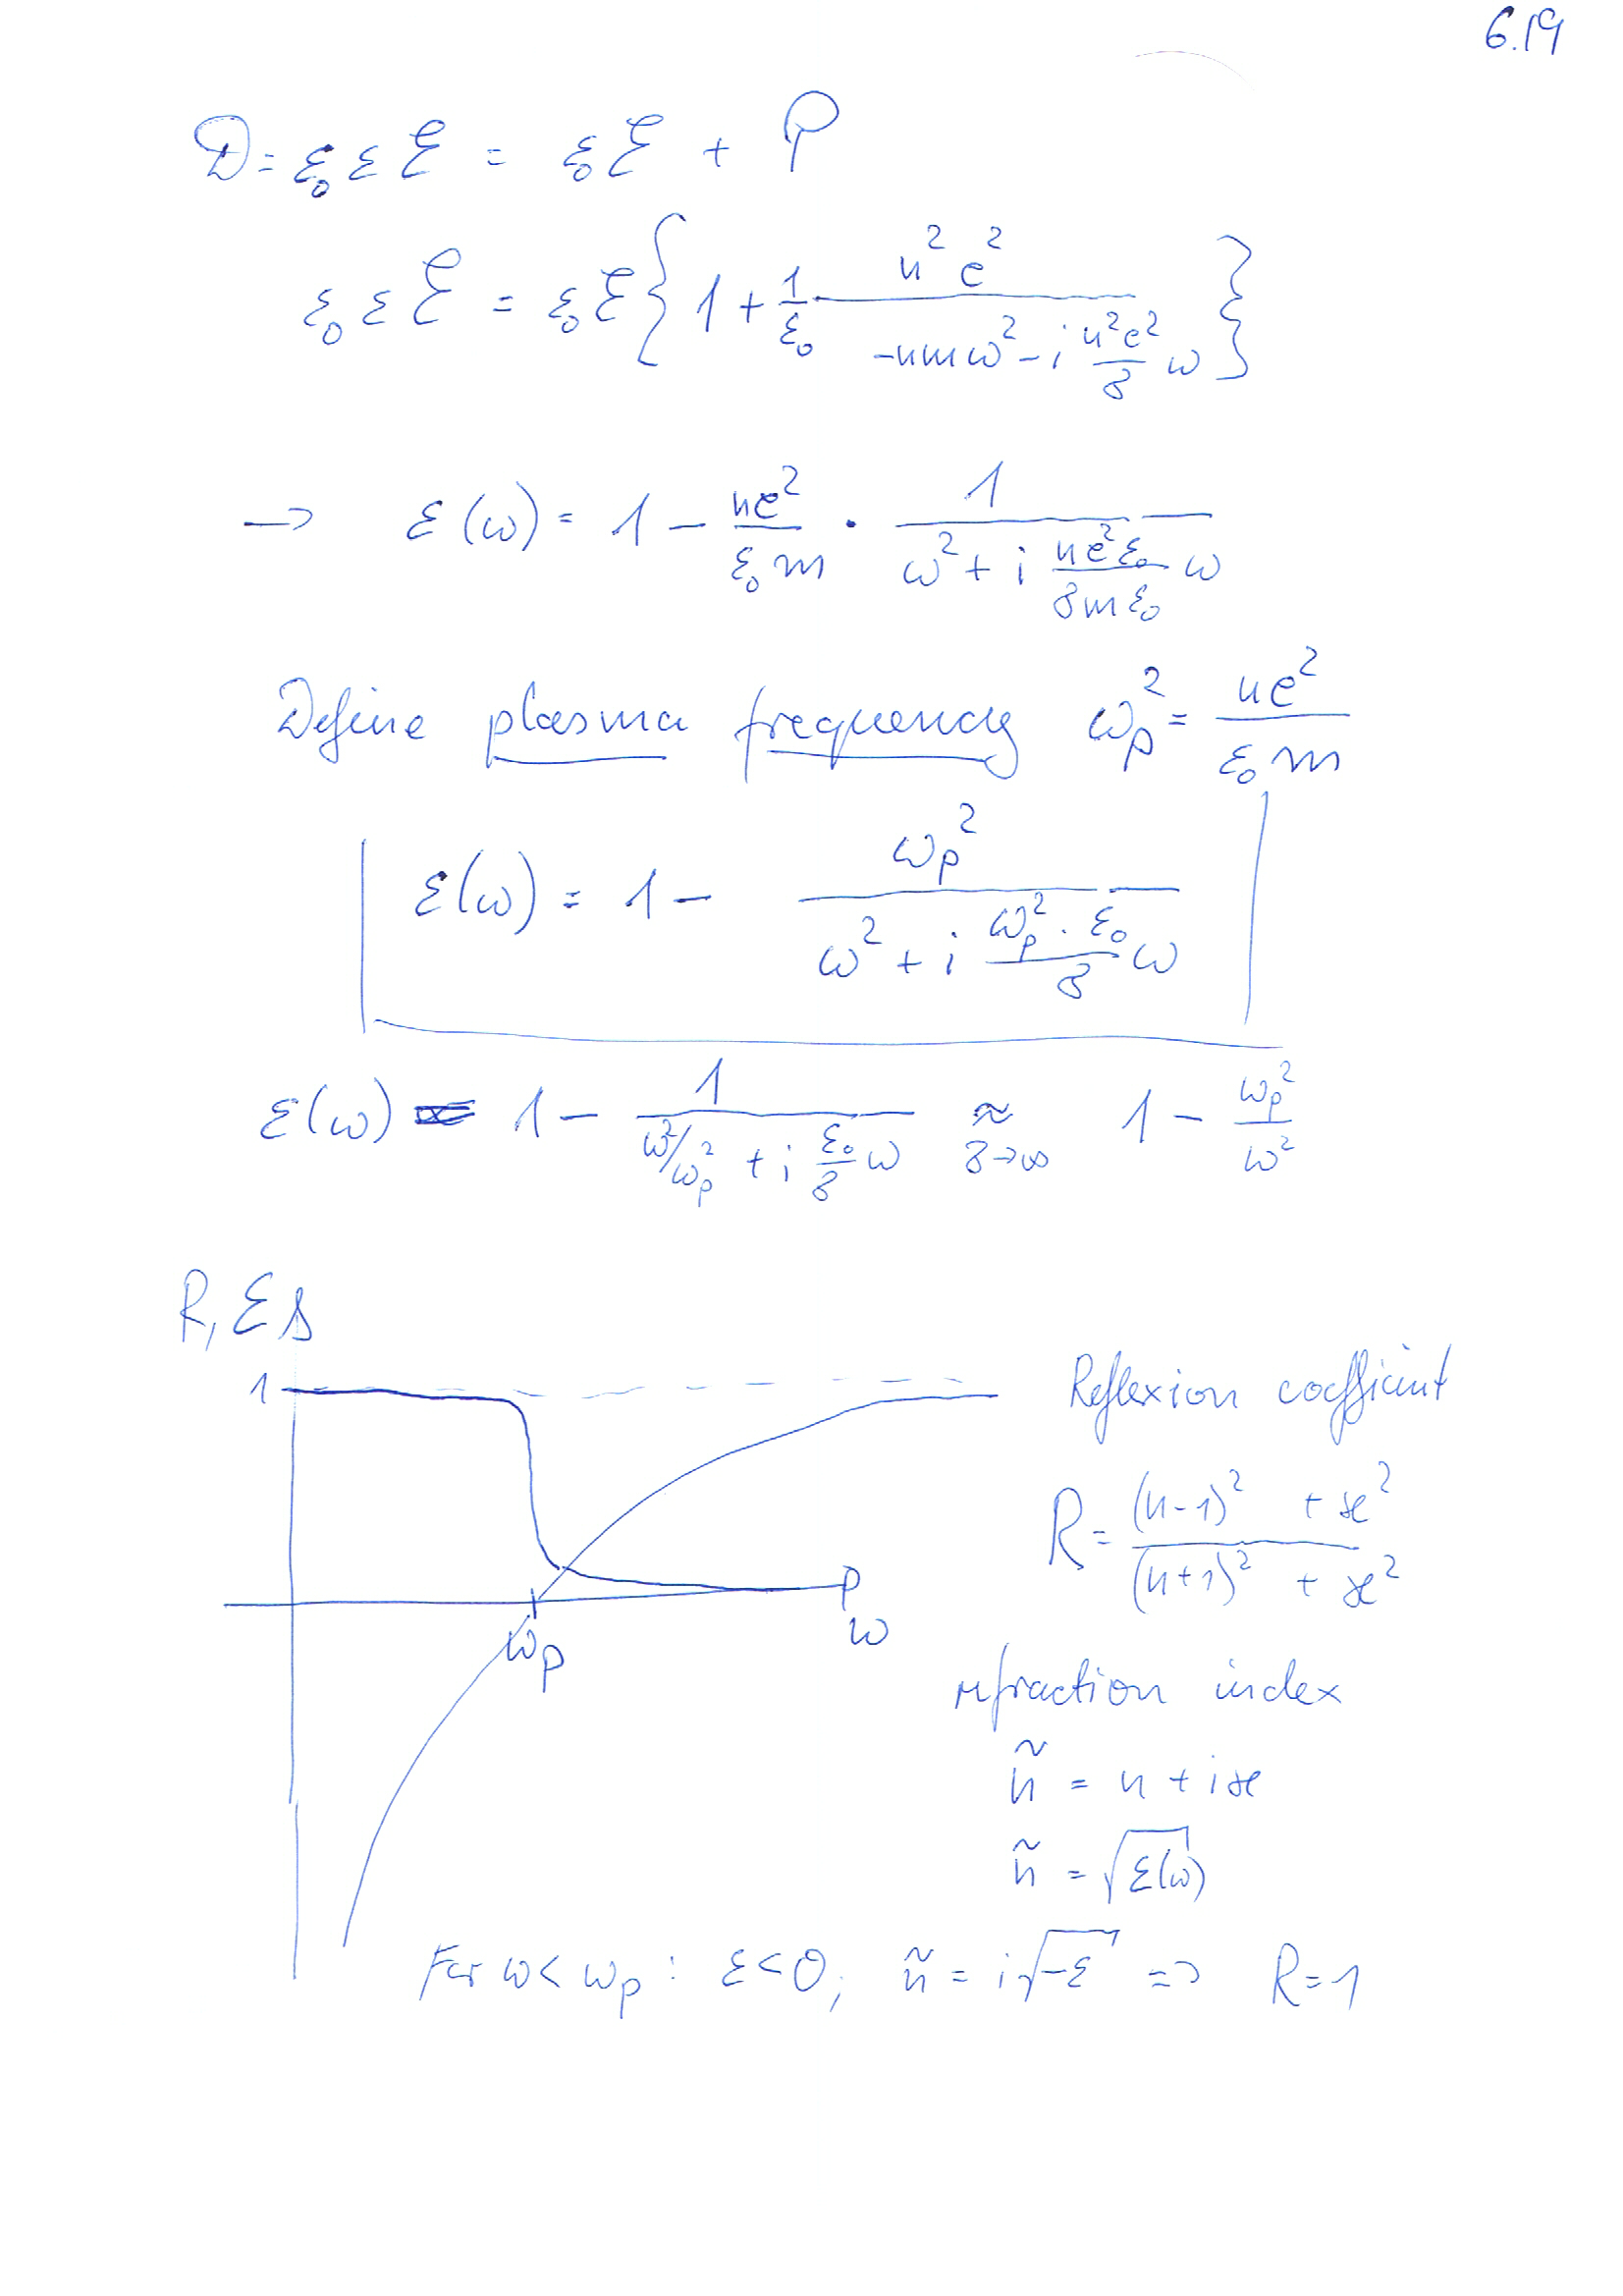 6.19
D = ε₀ ε ℰ = ε₀ ℰ + P
ε₀ ε ℰ = ε₀ ℰ { 1 + 1/ε₀ · n² e² / (-nmω² - i (n²e²/σ) ω) }
→ ε(ω) = 1 - ne²/(ε₀ m) · 1 / (ω² + i (ne² ε₀/(σ m ε₀)) ω)
Define plasma frequency ωp² = ne²/(ε₀ m)
ε(ω) = 1 - ωp² / (ω² + i (ωp² · ε₀/σ) ω)
ε(ω) = 1 - 1 / (ω²/ωp² + i (ε₀/σ) ω) ≈ (σ→∞) 1 - ωp²/ω²
R, ε
1
ωp
ω
Reflexion coefficient
R = ((n-1)² + ϰ²) / ((n+1)² + ϰ²)
refraction index
ñ = n + iϰ
ñ = √ε(ω)
For ω < ωp : ε < 0, ñ = i√-ε => R = 1